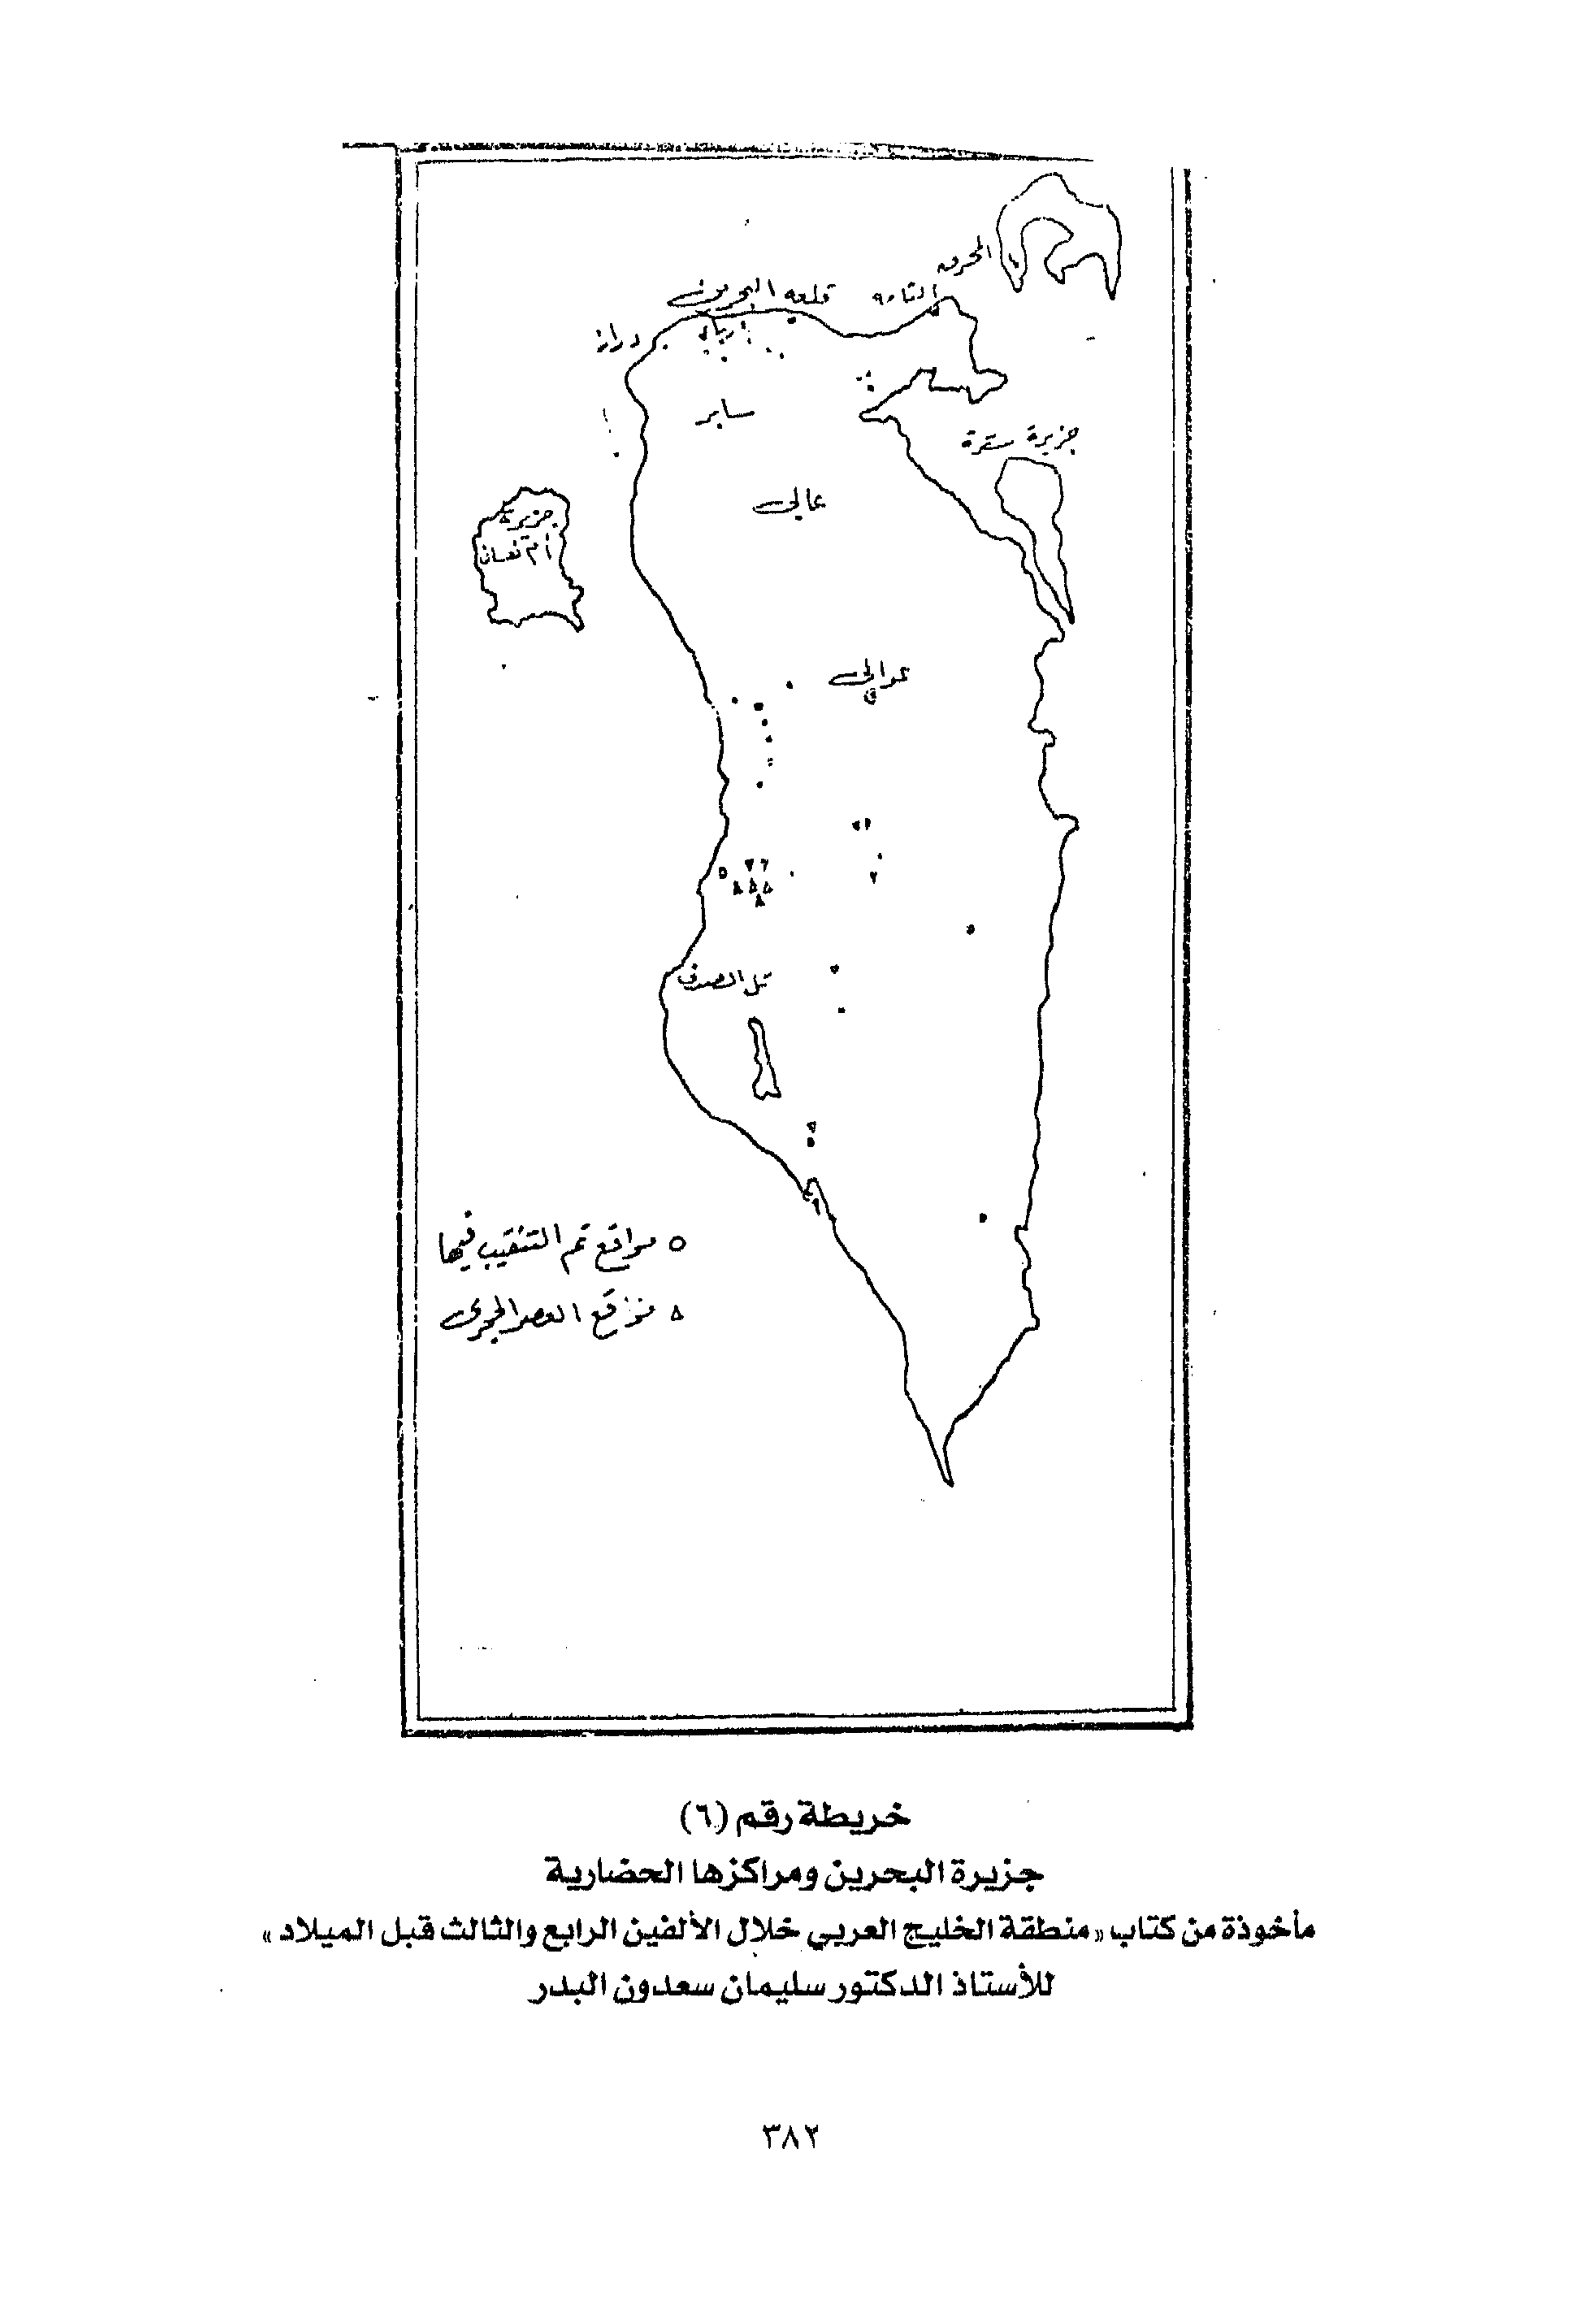 المحرق
المنامة
قلعة البحرين
دراز
باربار
سار
جزيرة سترة
عالي
جزيرة
أم نعسان
عوالي
تل الصدف
o مواقع تم التنقيب فيها
∆ مواقع العصر الحجري
خريطة رقم (٦)
جزيرة البحرين ومراكزها الحضارية
مأخوذة من كتاب «منطقة الخليج العربي خلال الألفين الرابع والثالث قبل الميلاد»
للأستاذ الدكتور سليمان سعدون البدر
٣٨٢